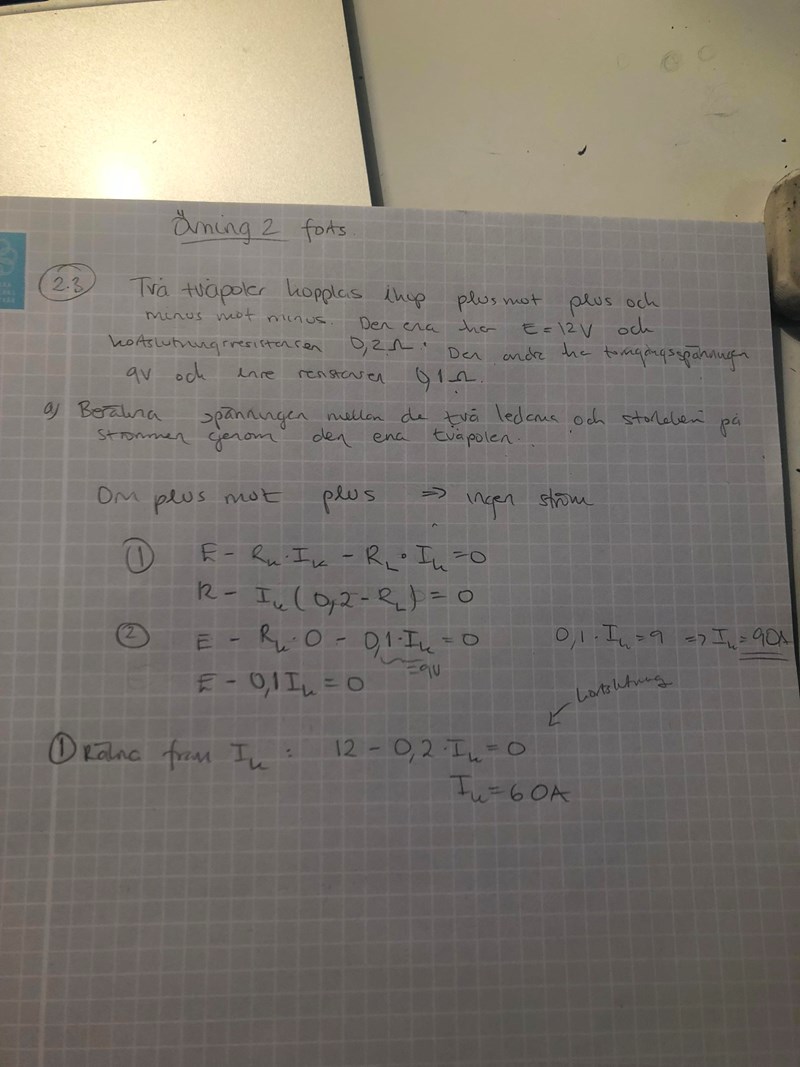 Övning 2 forts.
2.3 Två tvåpoler kopplas ihop plus mot plus och
minus mot minus. Den ena har E = 12V och
kortslutningsresistansen 0,2Ω. Den andra har tomgångsspänningen
9V och inre resistansen 0,1Ω.
a) Beräkna spänningen mellan de två ledarna och storleken på
strömmen genom den ena tvåpolen.
Om plus mot plus => ingen ström
① E - Rk·Ik - RL·Ik = 0
12 - Ik(0,2 - RL) = 0
② E - Rk·0 - 0,1·Ik = 0 0,1·Ik = 9 => Ik = 90A
=9V
E - 0,1Ik = 0
kortslutning
① Räkna fram Ik: 12 - 0,2·Ik = 0
Ik = 60A